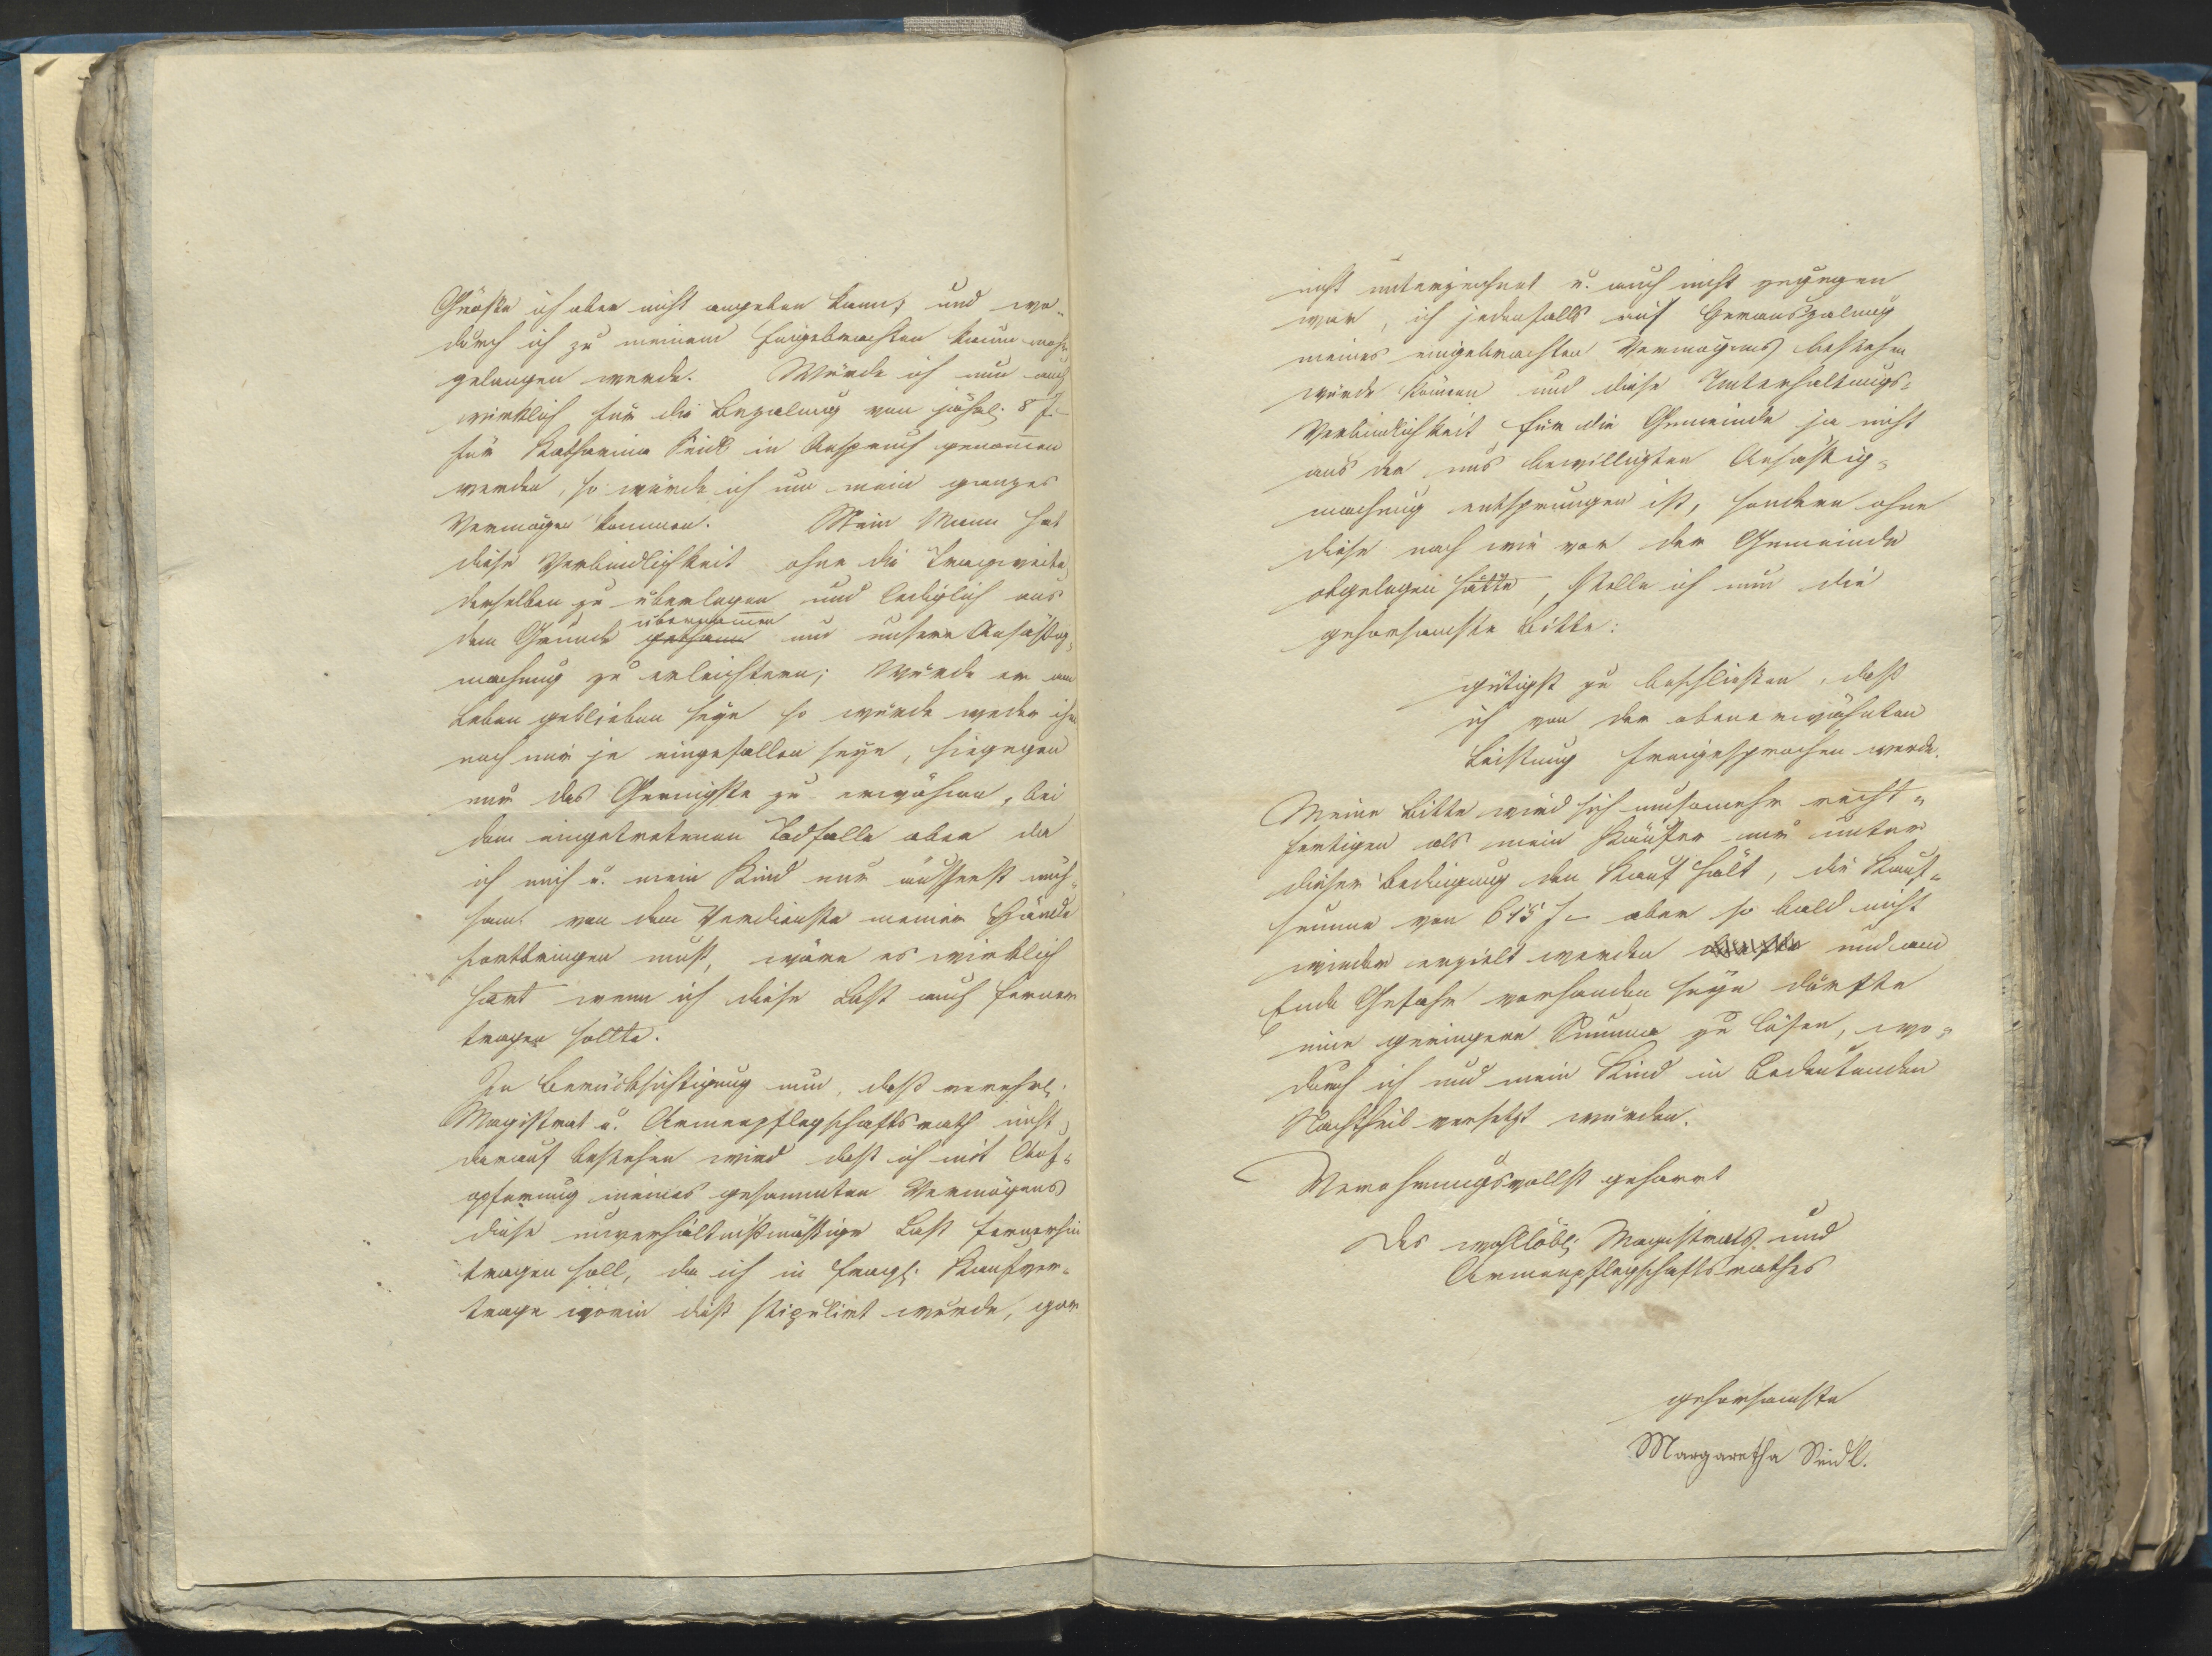 Größe ich aber nicht angeben kann; und wo-
durch ich zu meinem Eingebrachten kaum mehr
gelangen werde. Würde ich nun auch
wirklich für die Bezalung von jährl. 8 f.-
für Katharina Seidl in Anspruch genommen
werden, so würde ich um mein ganzes
Vermögen kommen. Mein Mann hat
diese Verbindlichkeit ohne die Tragweite
derselben zu überlegen und lediglich aus
übernommen
dem Grunde gethann um unsere Ansäßig-
machung zu erleichtern; Würde er am
Leben geblieben seyn so würde weder ihm
noch mir je eingefallen seyn, hiegegen
nur das Geringste zu erwähnen, bei
dem eingetretenen Todfalle aber da
ich mich u. mein Kind nur äusserst müh-
sam von dem Verdienste meiner Hände
fortbringen muß, wäre es wirklich
hart wenn ich diese Last auch ferner
tragen sollte.
In Berücksichtigung nun, daß verehrl.
Magistrat u. Armenpflegschaftsrath nicht
darauf bestehen wird daß ich mit Auf-
opferung meines gesammten Vermögens
diese unverhältnißmäßige Last fernerhin
tragen soll, da ich in fragl. Kaufver-
trage worin dieß stipulirt wurde, gar
nicht unterzeichnet u. auch nicht zugegen
war, ich jedenfalls auf Herauszalung
meines eingebrachten Vermögens bestehen
würde können und diese Unterhaltungs-
Verbindlichkeit für die Gemeinde ja nicht
aus der uns bewilligten Ansäßig-
machung entsprungen ist, sondern ohne
diese nach wie vor der Gemeinde
obgelegen hätte, stelle ich nun die
gehorsamste Bitte:
gütigst zu beschließen, daß
ich von der obenerwähnten
Leistung freigesprochen werde.
Meine Bitte wird sich umsomehr recht-
fertigen als mein Käufer nur unter
dieser Bedingung den Kauf hält, die Kauf-
summe von 615 f- aber so bald nicht
wieder erzielt werden dürfte und am
Ende Gefahr vorhanden seyn dürfte
eine geringere Summe zu lösen, wo-
durch ich und mein Kind in bedeutenden
Nachtheil versetzt würden.
Verehrungsvollst geharrt
Des wohllöbl. Magistrats und
Armenpflegschaftsrathes
gehorsamste
Margaretha Seidl.